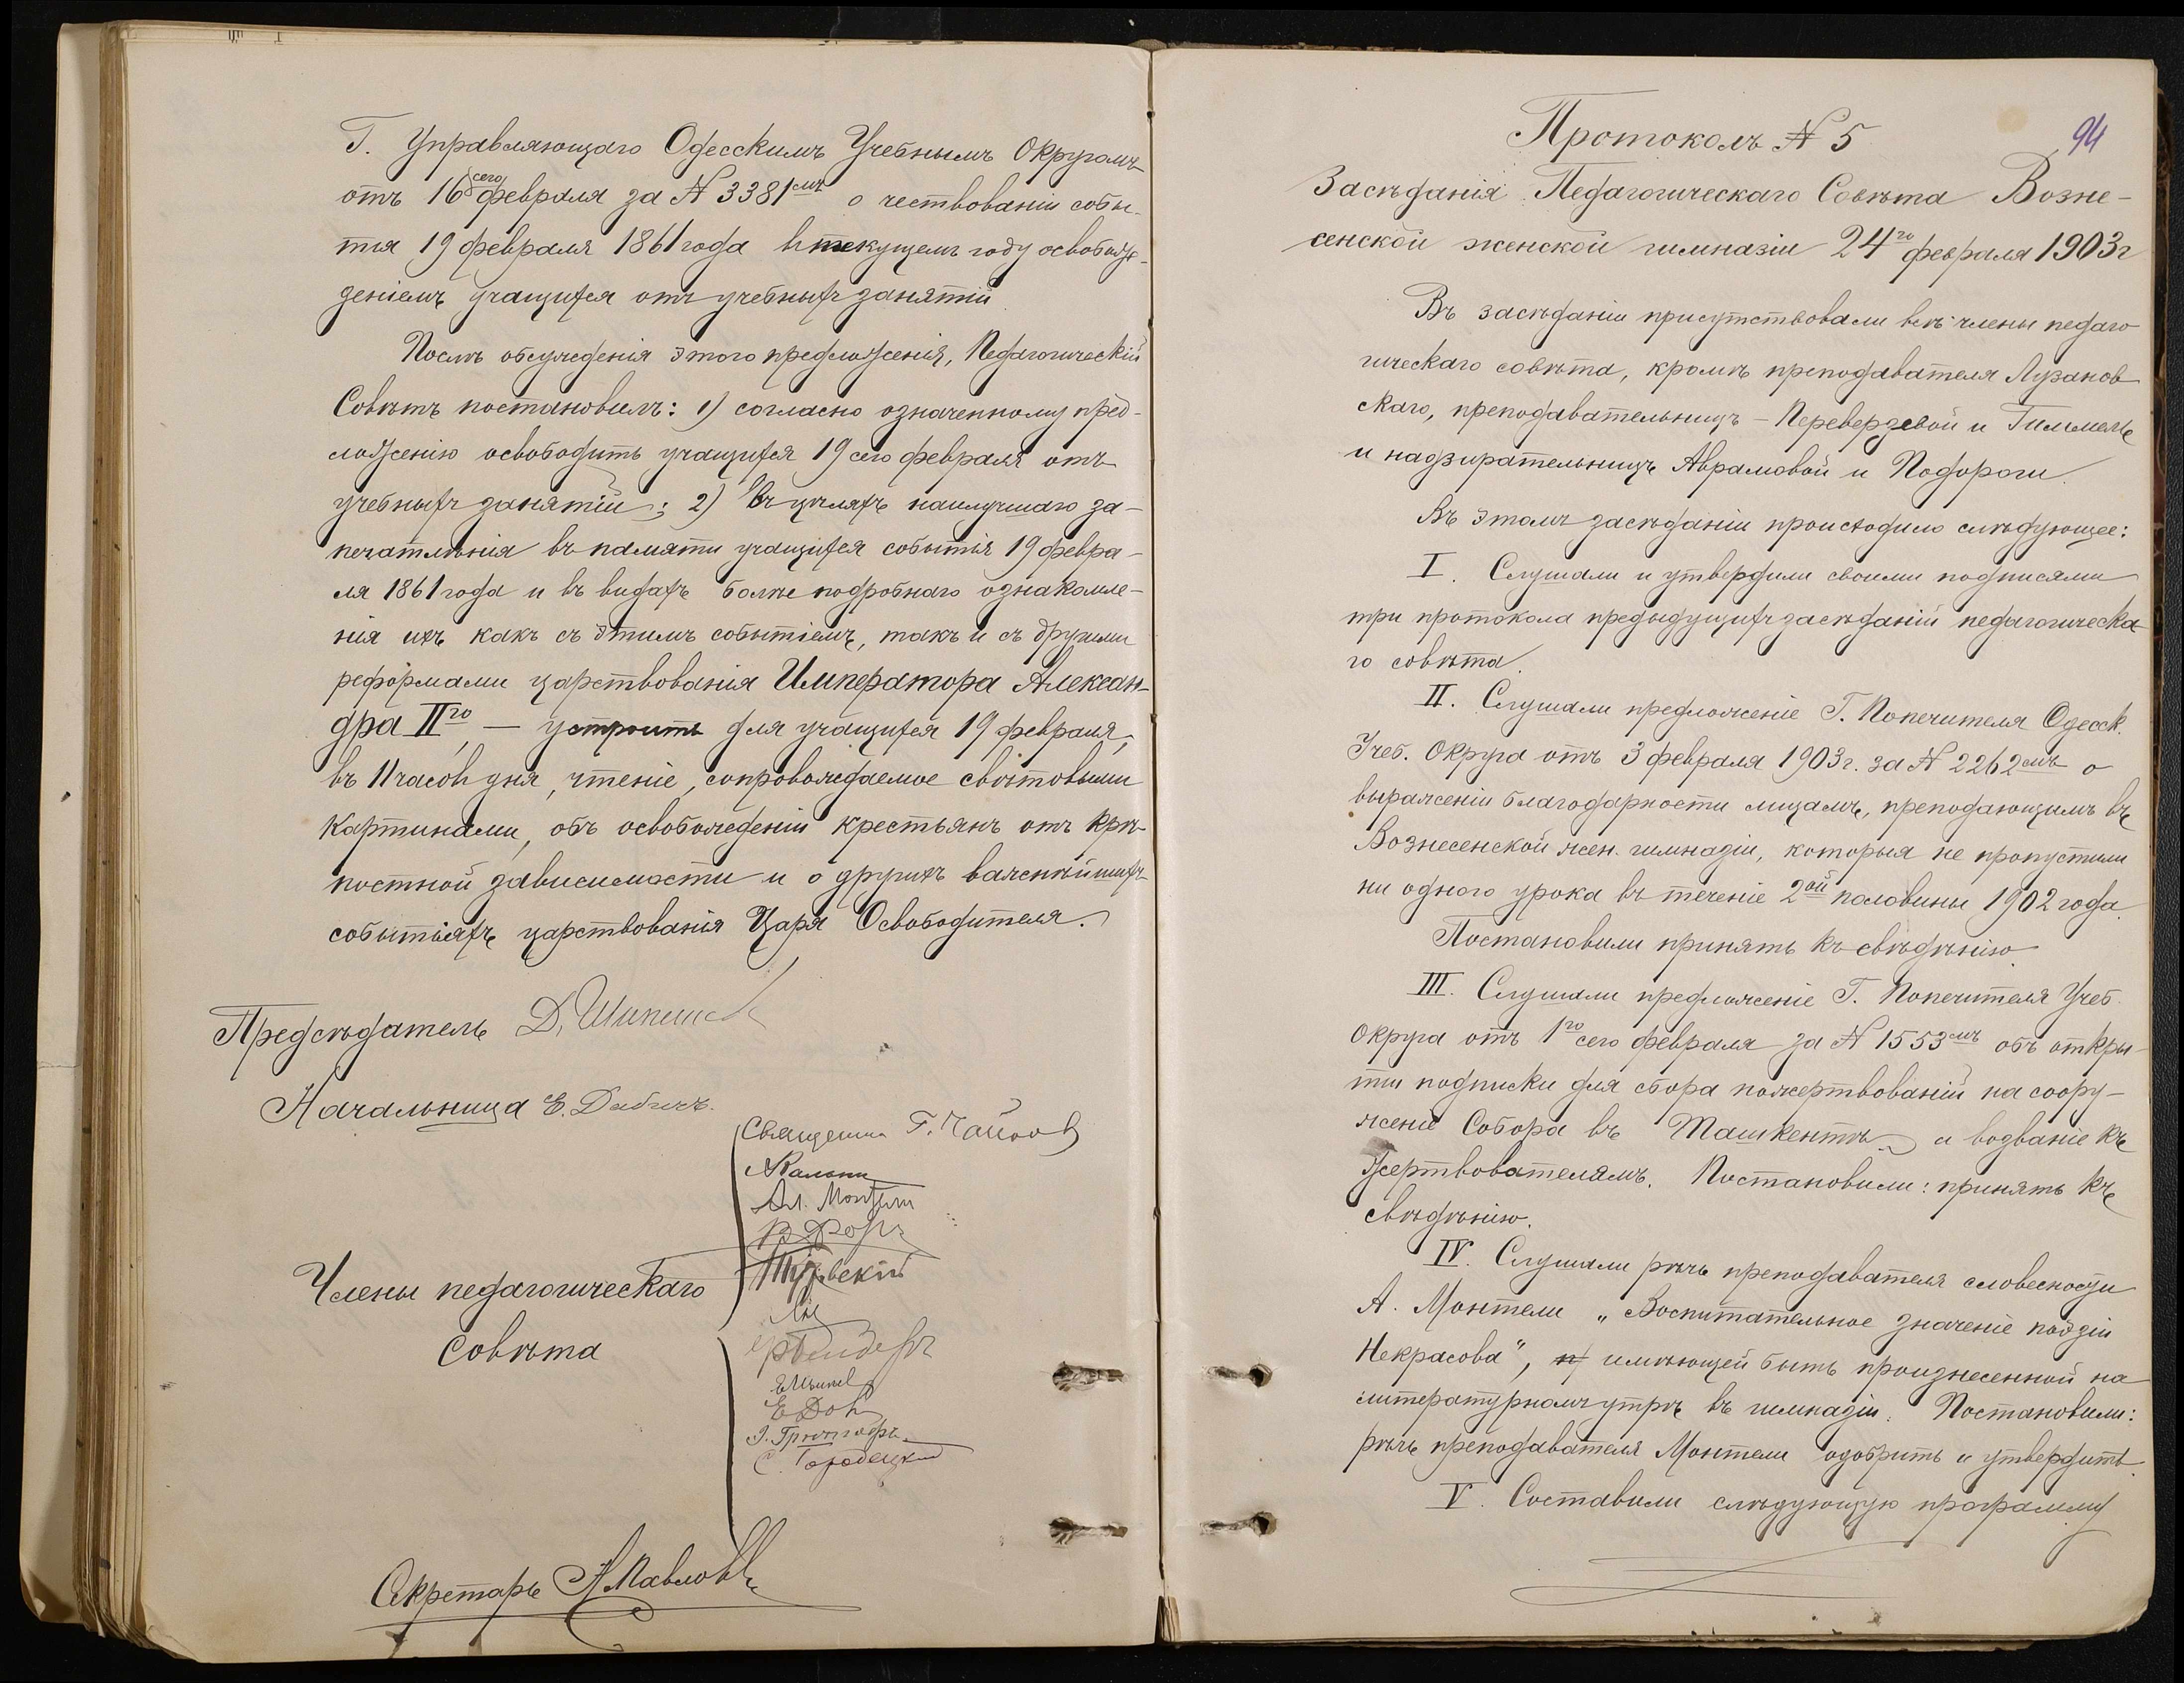 Г. Управляющаго Одесскимъ Учебнымъ Округомъ
отъ 16 сего февраля за № 3381смъ о чествованіи собы-
тія 19 февраля 1861 года въ текущемъ году освобож-
деніемъ учащихся отъ учебныхъ занятій
Послѣ обсужденія этого предложенія, Педагогическій
Совѣтъ постановилъ: 1) согласно означенному пред-
ложенію освободить учащихся 19 сего февраля отъ
учебныхъ занятій; 2) въ цѣляхъ наилучшаго за-
печатлѣнія въ памяти учащихся событія 19 февра-
ля 1861 года и въ видахъ болѣе подробнаго ознакомле-
нія ихъ какъ съ этимъ событіемъ, такъ и съ другими
реформами царствованія Императора Алексан-
дра IIго, — устроить для учащихся 19 февраля,
въ 11 часовъ дня, чтеніе, сопровождаемое свѣтовыми
картинами, объ освобожденіи крестьянъ отъ крѣ-
постной зависимости и о другихъ важнѣйшихъ
событіяхъ царствованія Царя Освободителя.
Предсѣдатель Д.
Начальница Е. Дабичъ.
Члены педагогическаго
Совѣта
Священник Г.
Ал. Монтели
С. Городецкій
Секретарь А. Павловъ
94
Протоколъ № 5
Засѣданія Педагогическаго Совѣта Возне-
сенской женской гимназіи 24го февраля 1903 г
Въ засѣданіи присутствовали всѣ члены педаго
гическаго совѣта, кромѣ преподавателя Лузанов
скаго, преподавательницъ – Переверзевой и Гиммель
и надзирательницъ Аврамовой и Подороги.
Въ этомъ засѣданіи происходило слѣдующее:
I. Слушали и утвердили своими подписями
три протокола предыдущихъ засѣданій педагогическа
го совѣта.
II. Слушали предложеніе Г. Попечителя Одесск.
Учеб. Округа отъ 3 февраля 1903 г. за № 2262смъ о
выраженіи благодарности лицамъ, преподающимъ въ
Вознесенской жен. гимназіи, которыя не пропустили
ни одного урока въ теченіе 2ой половины 1902 года.
Постановили принять къ свѣдѣнію.
III. Слушали предложеніе Г. Попечителя Учеб.
Округа отъ 1го сего февраля за № 1553смъ объ откры-
тіи подписки для сбора пожертвованій на соору-
женіе Собора въ Ташкентѣ и воззваніе къ
жертвователямъ. Постановили: принять къ
свѣдѣнію.
IV. Слушали рѣчь преподавателя словесности
А. Монтели „Воспитательное значеніе поэзіи
Некрасова", имѣющей быть произнесенной на
литературномъ утрѣ въ гимназіи. Постановили:
рѣчь преподавателя Монтели одобрить и утвердить.
V. Составили слѣдующую программу